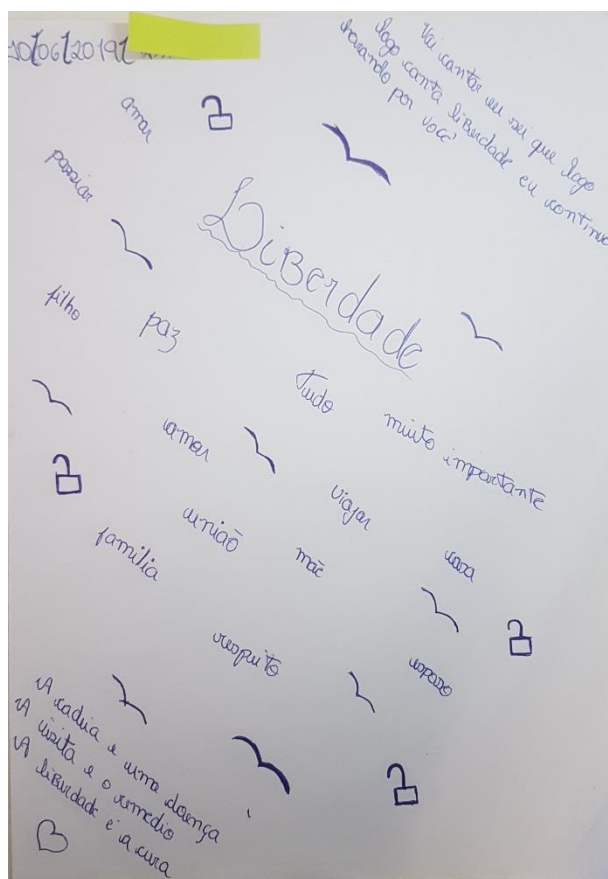 10/06/2019
Vai cantar eu sei que logo
logo canta liberdade eu continuo
horando por você
amar
passiar
Liberdade
filho
paz
Tudo muito importante
amor
viajar
casa
união
mãe
familia
respeito
esposo
A cadeia e uma doença
A visita e o remedio
A liberdade é a cura